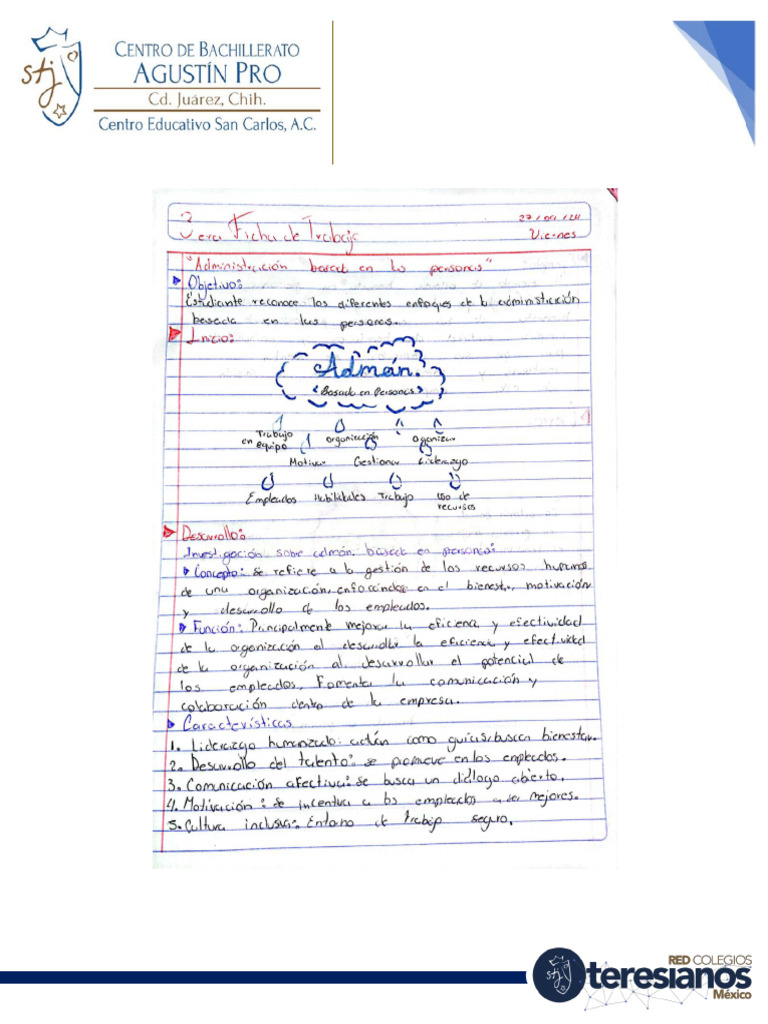 CENTRO DE BACHILLERATO
AGUSTÍN PRO
Cd. Juárez, Chih.
Centro Educativo San Carlos, A.C.
stj
27/09/24
3era Ficha de Trabajo
Viernes
"Administración basada en las personas"
Objetivo:
Estudiante reconoce los diferentes enfoques de la administración
basada en las personas.
Inicio:
Admón.
(Basado en Personas)
Trabajo en equipo
organización
Oganizar
Motivar
Gestionar
Liderazgo
Empleados
Habilidades
Trabajo
uso de recursos
Desarrollo:
Investigación sobre admón. basada en personas:
Concepto: se refiere a la gestión de los recursos humanos
de una organización, enfocándose en el bienest., motivación
y desarrollo de los empleados.
Función: Principalmente mejorar la eficiencia y efectividad
de la organización al desarrollar la eficiencia y efectividad
de la organización al desarrollar el potencial de
los empleados. Fomentar la comunicación y
colaboración dentro de la empresa.
Características
1. Liderazgo humanizado: actúan como guías, busca bienestar.
2. Desarrollo del talento: se promueve en los empleados.
3. Comunicación afectiva: se busca un diálogo abierto.
4. Motivación: se incentiva a los empleados a ser mejores.
5. Cultura inclusiva: Entorno de trabajo seguro.
RED COLEGIOS
stj teresianos
México